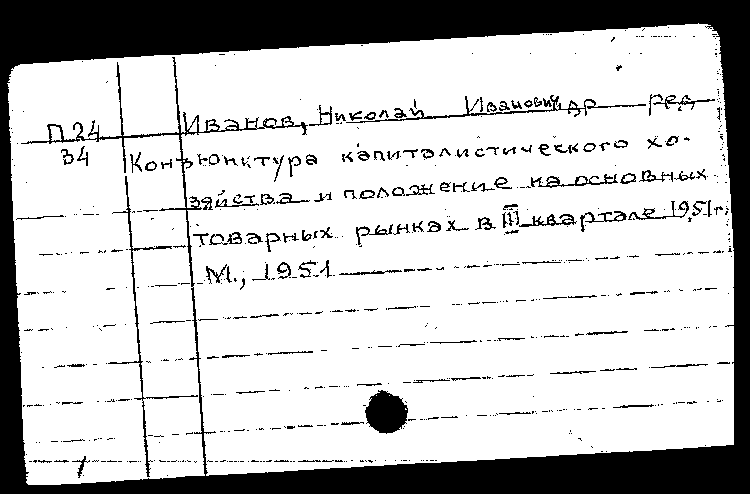 П24 Иванов, Николай Иванович др ред
34 Конъюнктура капиталистического хо-
зяйства и положение на основных
товарных рынках в III квартале 1951г.
М., 1951